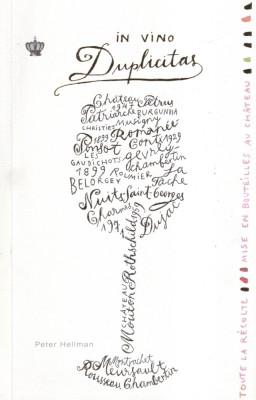 in Vino
Duplicitas
Château Pétrus
1947
Patriarche BURGUNDIA
CHRISTIES Musigny
1899 Romanée
Ponsot Conti 1929
LES Gevrey-
GAUDICHOTS Chambertin
1899 ROUMIER La
BELORGEY Tâche
Nuits Saint-Georges
Charmes 1959
1971 Dujac
CHÂTEAU
Mouton Rothschild
Peter Hellman
Montrachet
Meursault
Rousseau Chambertin
TOUTE LA RÉCOLTE MISE EN BOUTEILLES AU CHÂTEAU